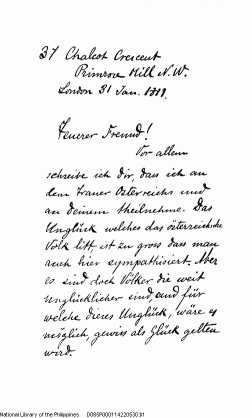 37 Chalcot Crescent
Primrose Hill N.W.
London 31 Jan. 1889.
Teurer Freund!
Vor allem
schreibe ich dir, dass ich an
dem Trauer Österreichs und
an deinem theilnehme. Das
Unglück welches das österreichische
Volk litt, ist zu gross dass man
auch hier sympathisirt. Aber
es sind doch Völker die weit
unglücklicher sind, und für
welche dieses Unglück, wäre es
möglich, gewiss als Glück gelten
wird.
National Library of the Philippines